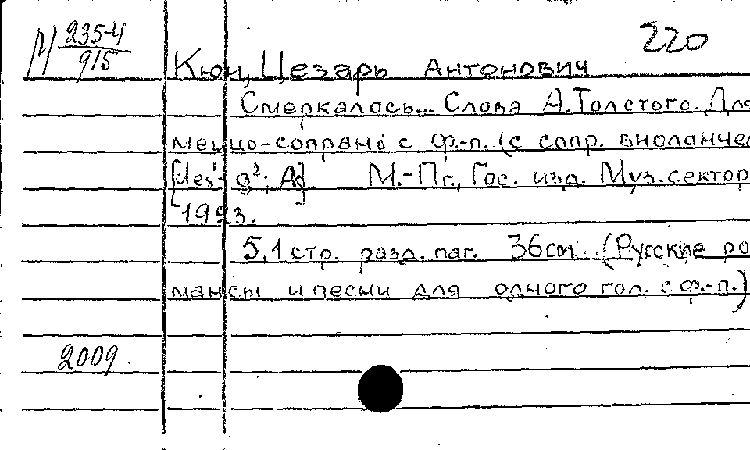 М 235-4
915
220
Кюи, Цезарь Антонович
Смеркалось... Слова А.Толстого. Для
меццо-сопрано с ф.-п. (с сопр. виолонче
[des¹- g²; As] М.-Пг., Гос. изд. Муз. сектор
1923.
5,1 стр. разд. паг. 36см. (Русские ро
мансы и песни для одного гол. с ф.-п.)
2009.